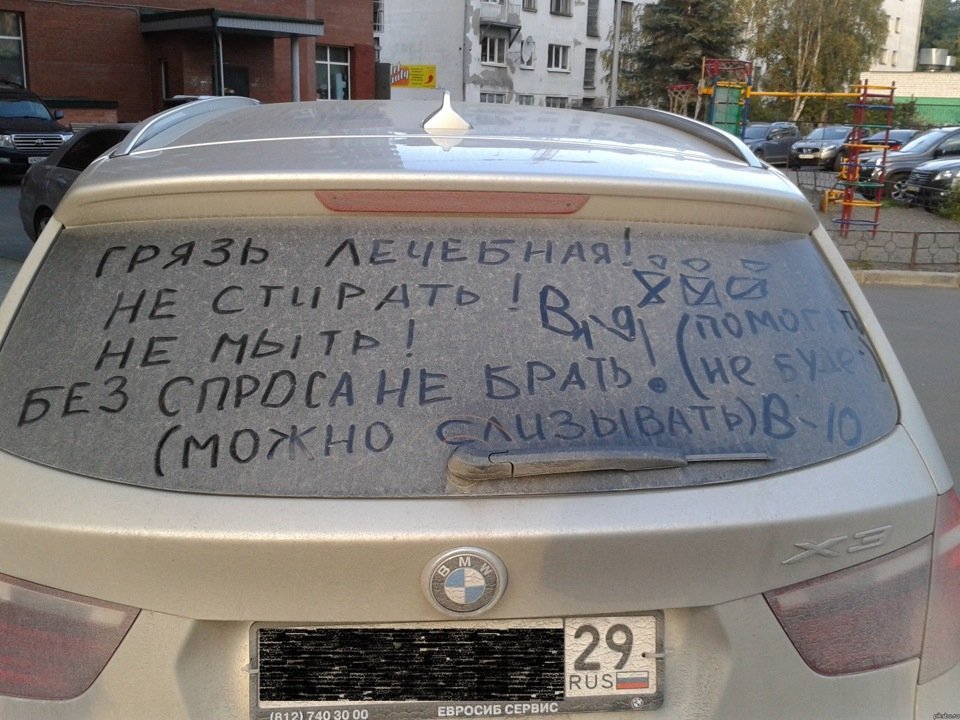 ГРЯЗЬ ЛЕЧЕБНАЯ!
НЕ СТИРАТЬ!
НЕ МЫТЬ!
(ПОМОГАТЬ
БЕЗ СПРОСА НЕ БРАТЬ!
(НЕ БУДЕ
(МОЖНО СЛИЗЫВАТЬ) В-10
X3
BMW
29
RUS
(812) 740 30 00 ЕВРОСИБ СЕРВИС